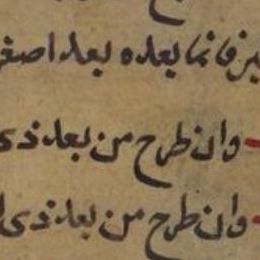 فانما يعده بعد اصغر
وان طرح من بعد ذى
وان طرح من بعد ذى